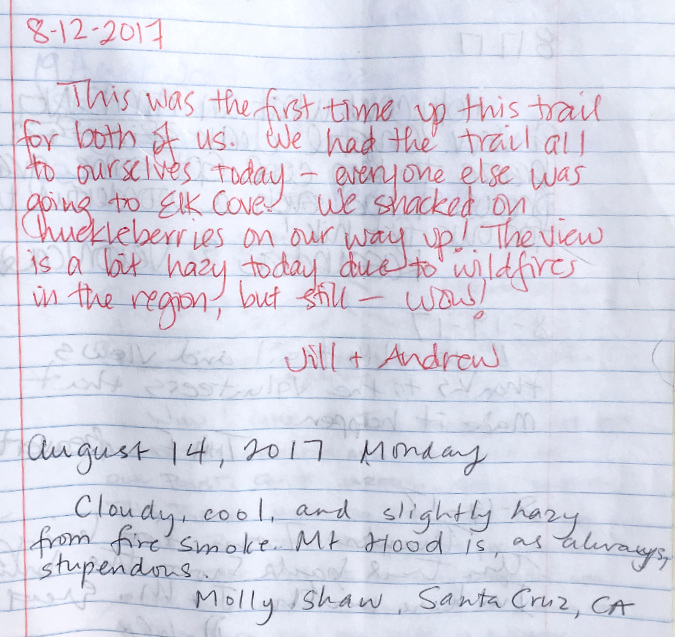 8-12-2017
This was the first time up this trail
for both of us. We had the trail all
to ourselves today - everyone else was
going to Elk Cove. We snacked on
huckleberries on our way up! The view
is a bit hazy today due to wildfires
in the region, but still - wow!
Jill + Andrew
August 14, 2017 Monday
Cloudy, cool, and slightly hazy
from fire smoke. Mt Hood is, as always,
stupendous.
Molly Shaw, Santa Cruz, CA